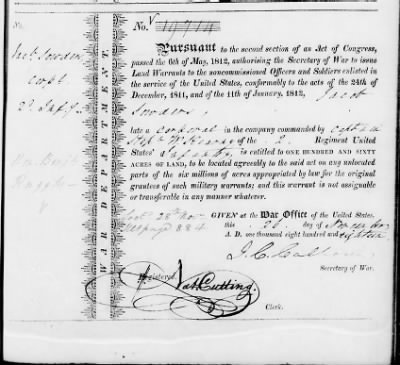 No. 19714
Pursuant to the second section of an Act of Congress,
passed the 6th of May, 1812, authorising the Secretary of War to issue
Land Warrants to the noncommissioned Officers and Soldiers enlisted
in the service of the United States, conformably to the acts of the 24th of
December, 1811, and of the 11th of January, 1812, Jacob
late a corporal in the company commanded by
of the 2. Regiment United
States' Infantry, is entitled to ONE HUNDRED AND SIXTY
ACRES OF LAND, to be located agreeably to the said act on any unlocated
parts of the six millions of acres appropriated by law for the original
grantees of such military warrants; and this warrant is not assignable
or transferable in any manner whatever.
GIVEN at the War Office of the United States.
this 26 day of November
A. D. one thousand eight hundred and eighteen
J. C. Calhoun
Secretary of War.
Registered
Nat Cutting.
Clerk.
WAR DEPARTMENT.
No.
Jacob
corpl
2d Inf.y